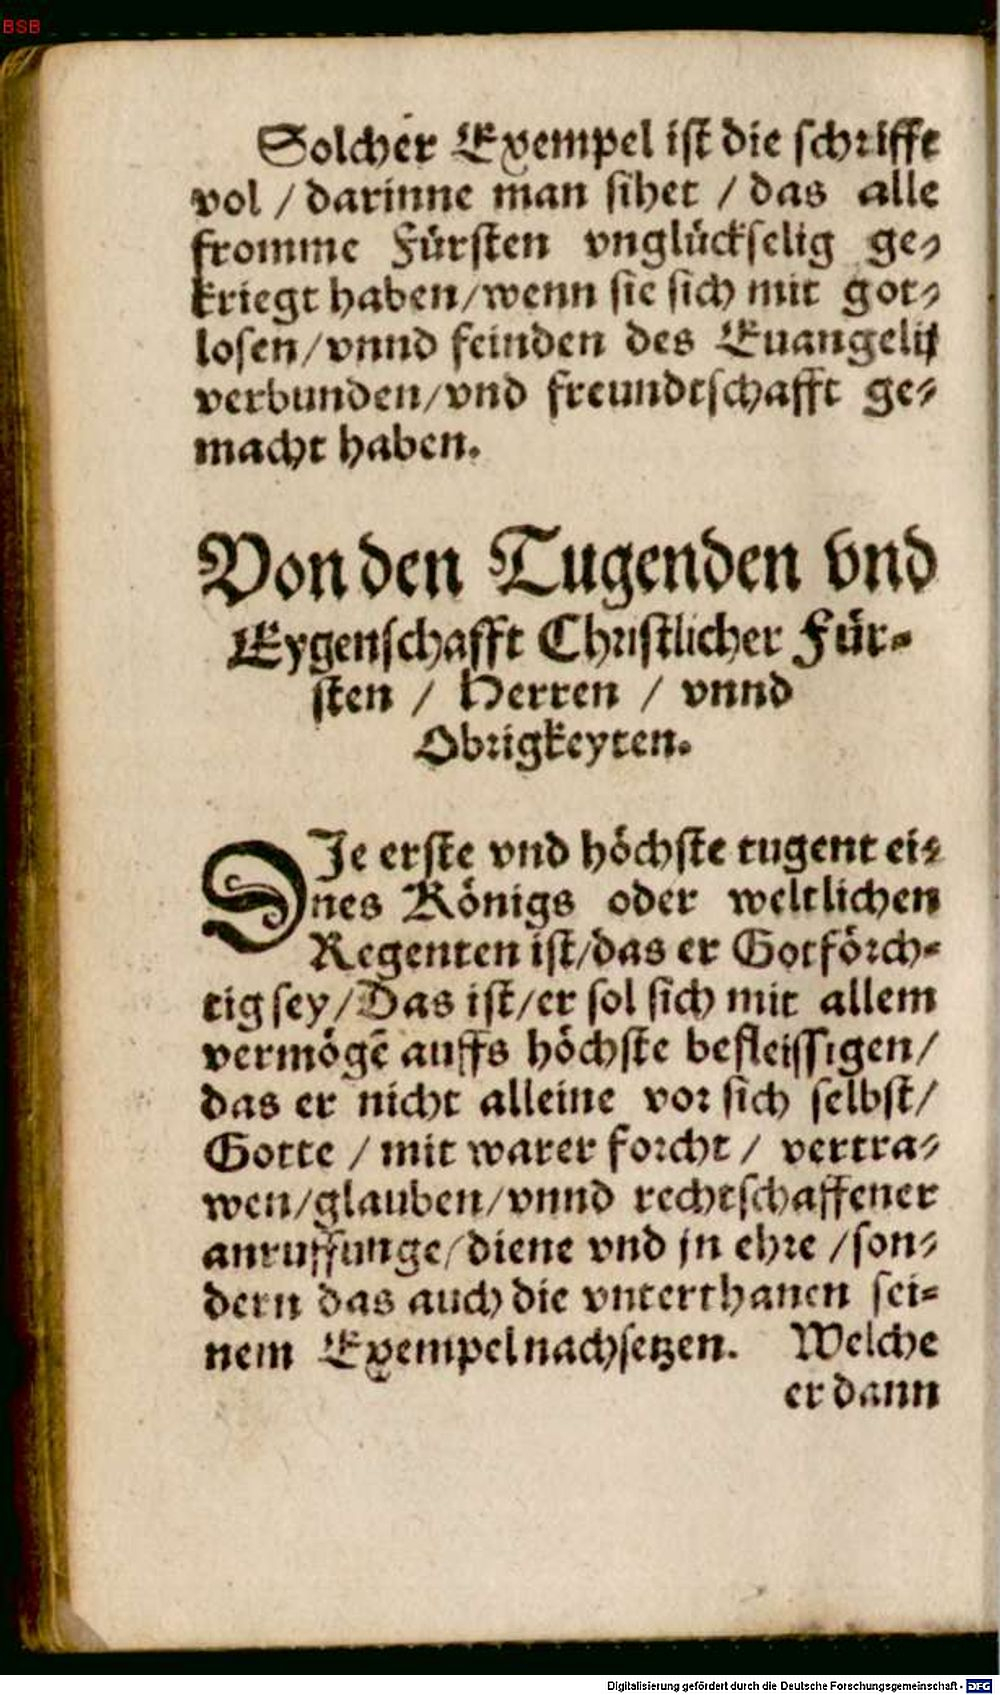 BSB
Solcher Exempel ist die schrifft
vol / darinne man sihet / das alle
fromme Fürsten vnglückselig ge-
kriegt haben/wenn sie sich mit got-
losen/vnnd feinden des Euangelij
verbunden/vnd freundtschafft ge-
macht haben.
Von den Tugenden vnd
Eygenschafft Christlicher Für-
sten / Herren / vnnd
Obrigkeyten.
DJe erste vnd höchste tugent ei-
nes Königs oder weltlichen
Regenten ist/das er Gotförch-
tig sey/Das ist/er sol sich mit allem
vermögẽ auffs höchste befleissigen/
das er nicht alleine vor sich selbst/
Gotte / mit warer forcht / vertra-
wen/glauben/vnnd rechtschaffener
anruffunge/diene vnd jn ehre /son-
dern das auch die vnterthanen sei-
nem Exempel nachsetzen. Welche
er dann
Digitalisierung gefördert durch die Deutsche Forschungsgemeinschaft - DFG